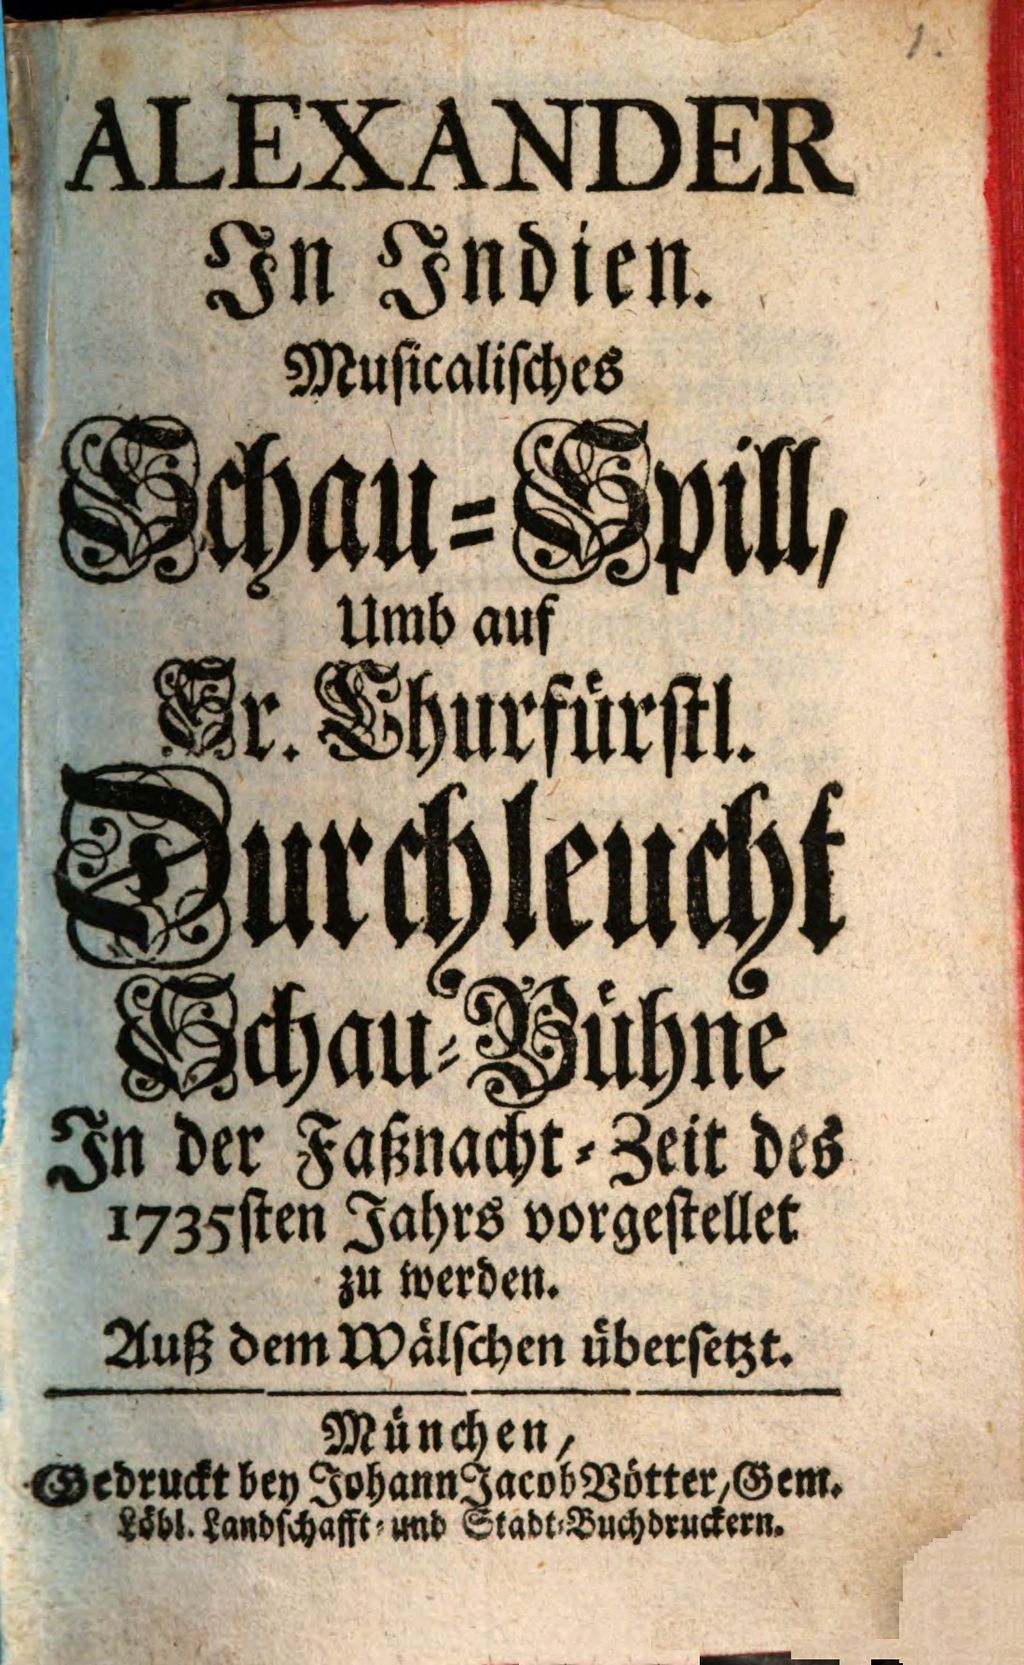 1.
ALEXANDER
In Indien.
Musicalisches
Schau-Spill,
Umb auf
Sr. Churfürstl.
Durchleucht
Schau-Bühne
In der Faßnacht-Zeit des
1735sten Jahrs vorgestellet
zu werden.
Auß dem Wälschen übersetzt.
München,
Gedruckt bey Johann Jacob Vötter, Gem.
Löbl. Landschafft- und Stadt-Buchdruckern.